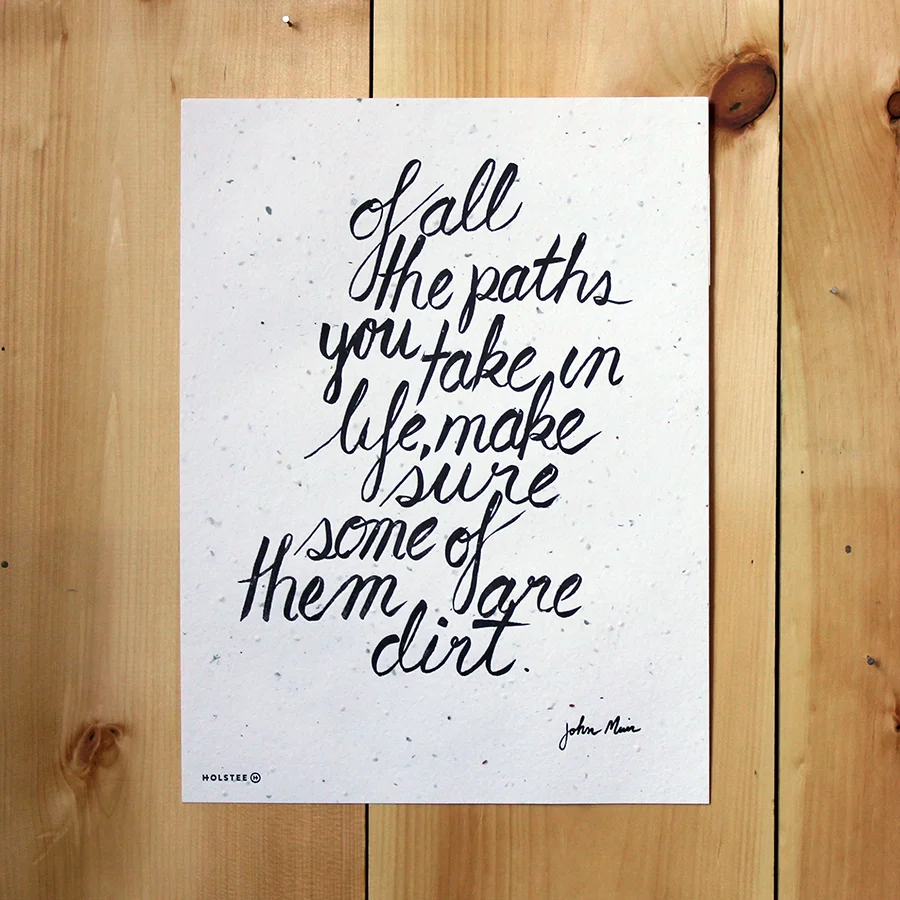 of all
the paths
you take in
life, make
sure
some of
them are
dirt.
John Muir
HOLSTEE H